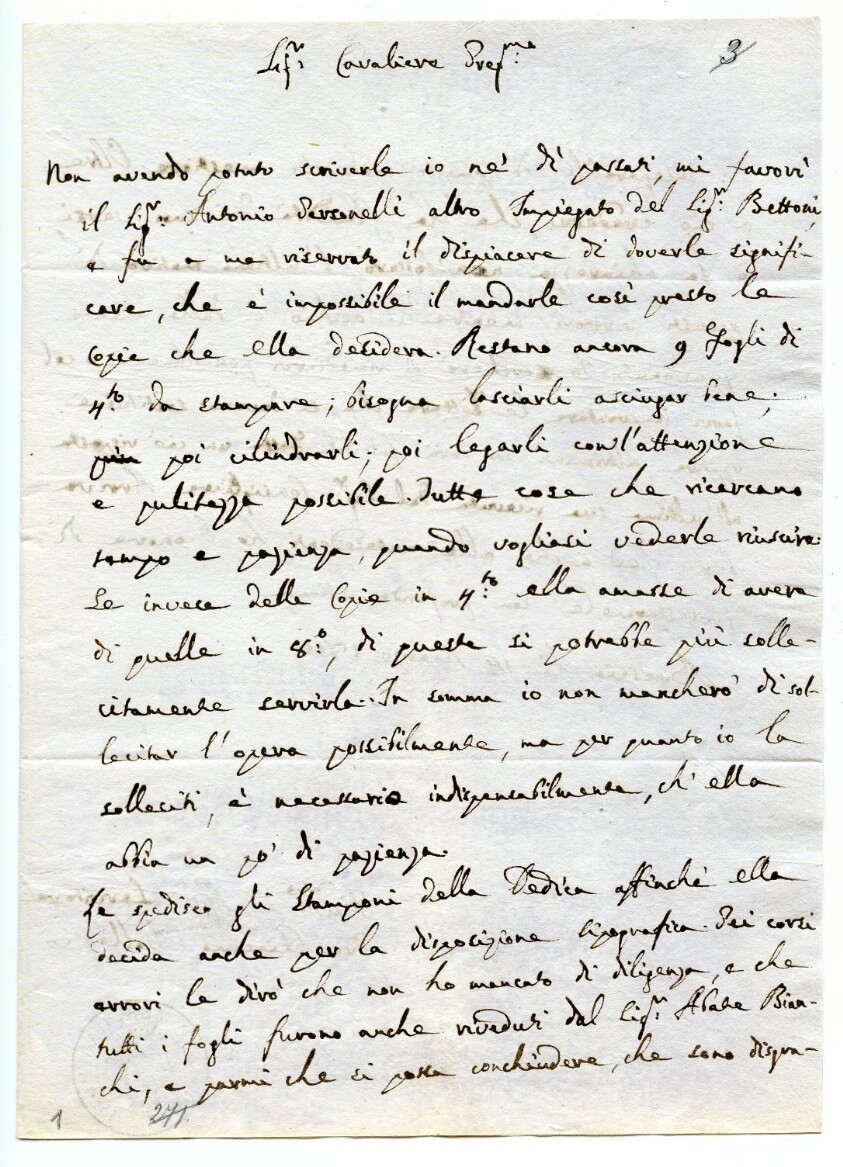 Sig.r Cavaliere Preg.mo
3
Non avendo potuto scriverle io ne' dì passati, mi favorì
il Sig.r Antonio Personelli altro Impiegato del Sig.r Bettoni,
e fu a me riservato il dispiacere di doverle signifi-
care, che è impossibile il mandarle così presto le
Copie che ella desidera. Restano ancora 9 fogli di
4.to da stampare; bisogna lasciarli asciugar bene;
più poi cilindrarli; poi legarli con l'attenzione
e pulitezza possibile. Tutte cose che ricercano
tempo e pazienza, quando vogliasi vederle riuscire.
Se invece delle Copie in 4.to ella amasse di avere
di quelle in 8.o, di queste si potrebbe più solle-
citamente servirla. In somma io non mancherò di sol-
lecitar l'opera possibilmente, ma per quanto io la
solleciti, è necessario indispensabilmente, ch'ella
abbia un po' di pazienza.
Le spedisco gli Stamponi della Dedica affinchè ella
decida anche per la disposizione tipografica. Dei corsi
errori le dirò che non ho mancato di diligenza, e che
tutti i fogli furono anche riveduti dal Sig.r Abate Bian-
chi, e parmi che si possa conchiudere, che sono disgra-
1
271.